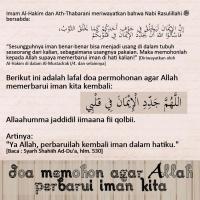 Imam Al-Hakim dan Ath-Thabarani meriwayatkan bahwa Nabi Rasulillahi ﷺ
bersabda:
إِنَّ الْإِيمَانَ لَيَخْلَقُ فِي جَوْفِ أَحَدِكُمْ كَمَا يَخْلَقُ الثَّوْبُ،
فَاسْأَلُوا اللهَ أَنْ يُجَدِّدَ الْإِيمَانَ فِي قُلُوبِكُمْ
"Sesungguhnya iman benar-benar bisa menjadi usang di dalam tubuh
seseorang dari kalian, sebagaimana usangnya pakaian. Maka memohonlah
kepada Allah supaya memperbarui iman di hati kalian!" [Diriwayatkan oleh
Al-Hakim di dalam Al-Mustadrak
Berikut ini adalah lafal doa permohonan agar Allah
memerbarui iman kita kembali:
اللَّهُمَّ جَدِّدِ الْإِيْمَانَ فِي قَلْبِي
Allaahumma jaddidil iimaana fii qolbii.
Artinya:
"Ya Allah, perbaruilah kembali iman dalam hatiku."
[Baca : Syarh Shahiih Ad-Du'a, hlm. 530]
doa memohon agar Allah
perbarui iman kita